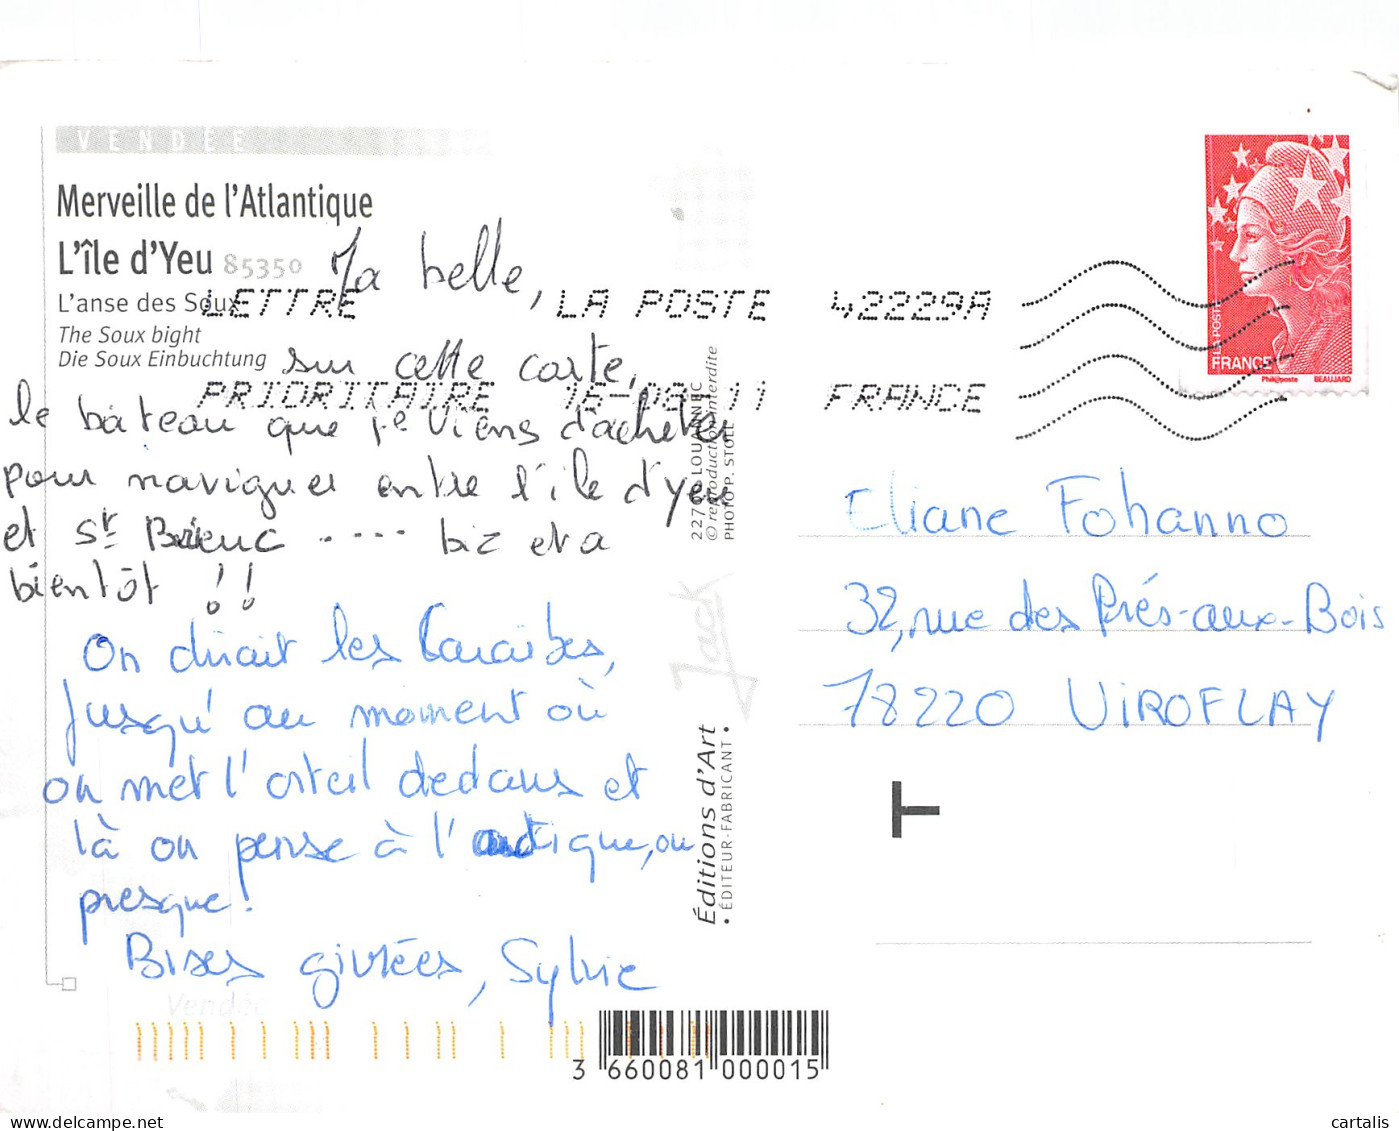 VENDÉE
Merveille de l'Atlantique
L'île d'Yeu 85350
L'anse des Soux
The Soux bight
Die Soux Einbuchtung
Ma belle,
sur cette carte,
le bâteau que je viens d'acheter
pour naviguer entre l'île d'Yeu
et St Brieuc ..... biz et a
bientôt !!
On dirait les Caraïbes,
Jusqu'au moment où
on met l'orteil dedans et
là on pense à l'arctique, ou
presque!
Bises givrées, Sylvie
LETTRE LA POSTE 42229A
PRIORITAIRE 11 FRANCE
LOUANNEC
© reproduction interdite
PHOTO P. STOLL
Jack
Éditions d'Art
• ÉDITEUR-FABRICANT •
LA POSTE
FRANCE
Phil@poste BEAUJARD
Eliane Fohanno
32, rue des Prés-aux-Bois
78220 VIROFLAY
T
Vendée
3 660081 000015
delcampe.net
cartalis